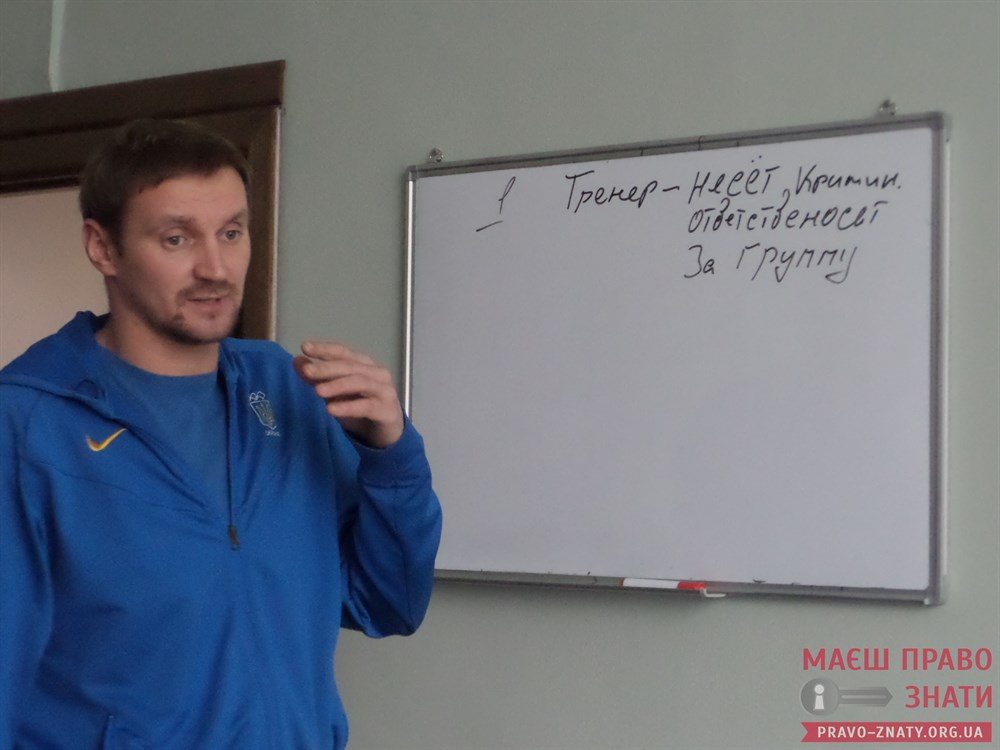 1 Тренер – Несёт Кримин.
ответственосвт
За группу
МАЄШ ПРАВО
ЗНАТИ
PRAVO-ZNATY.ORG.UA